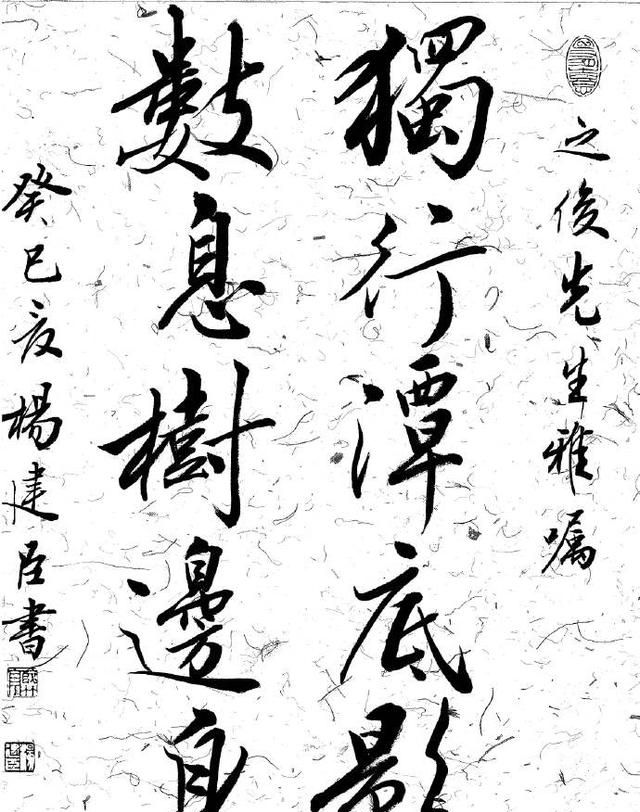 之俊先生雅嘱
獨行潭底影
數息樹邊身
癸巳夏楊建臣書